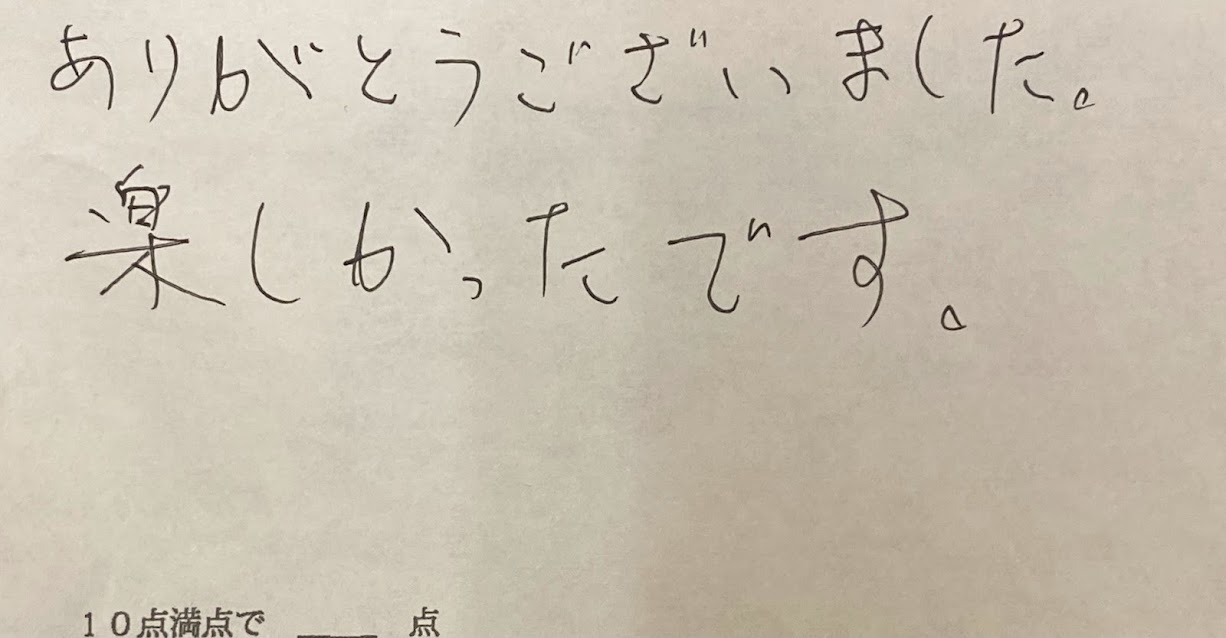 ありがとうございました。
楽しかったです。
10点満点で ____ 点